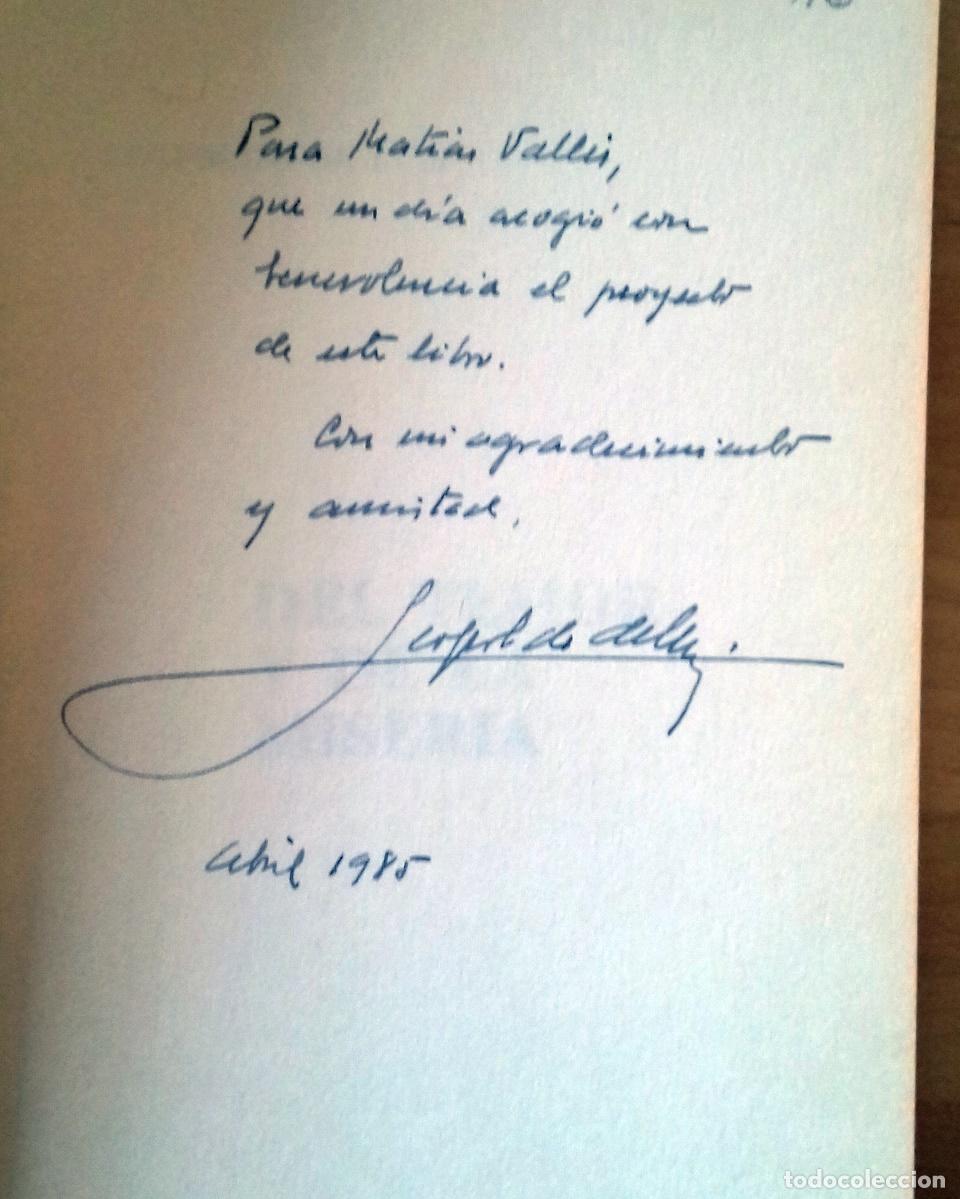 Para Matías Vallés,
que un día acogió con
benevolencia el proyecto
de este libro.
Con mi agradecimiento
y amistad,
Leopoldo de Luis.
Abril 1985
DEL TEMOR
Y DE LA
MISERIA
todocoleccion